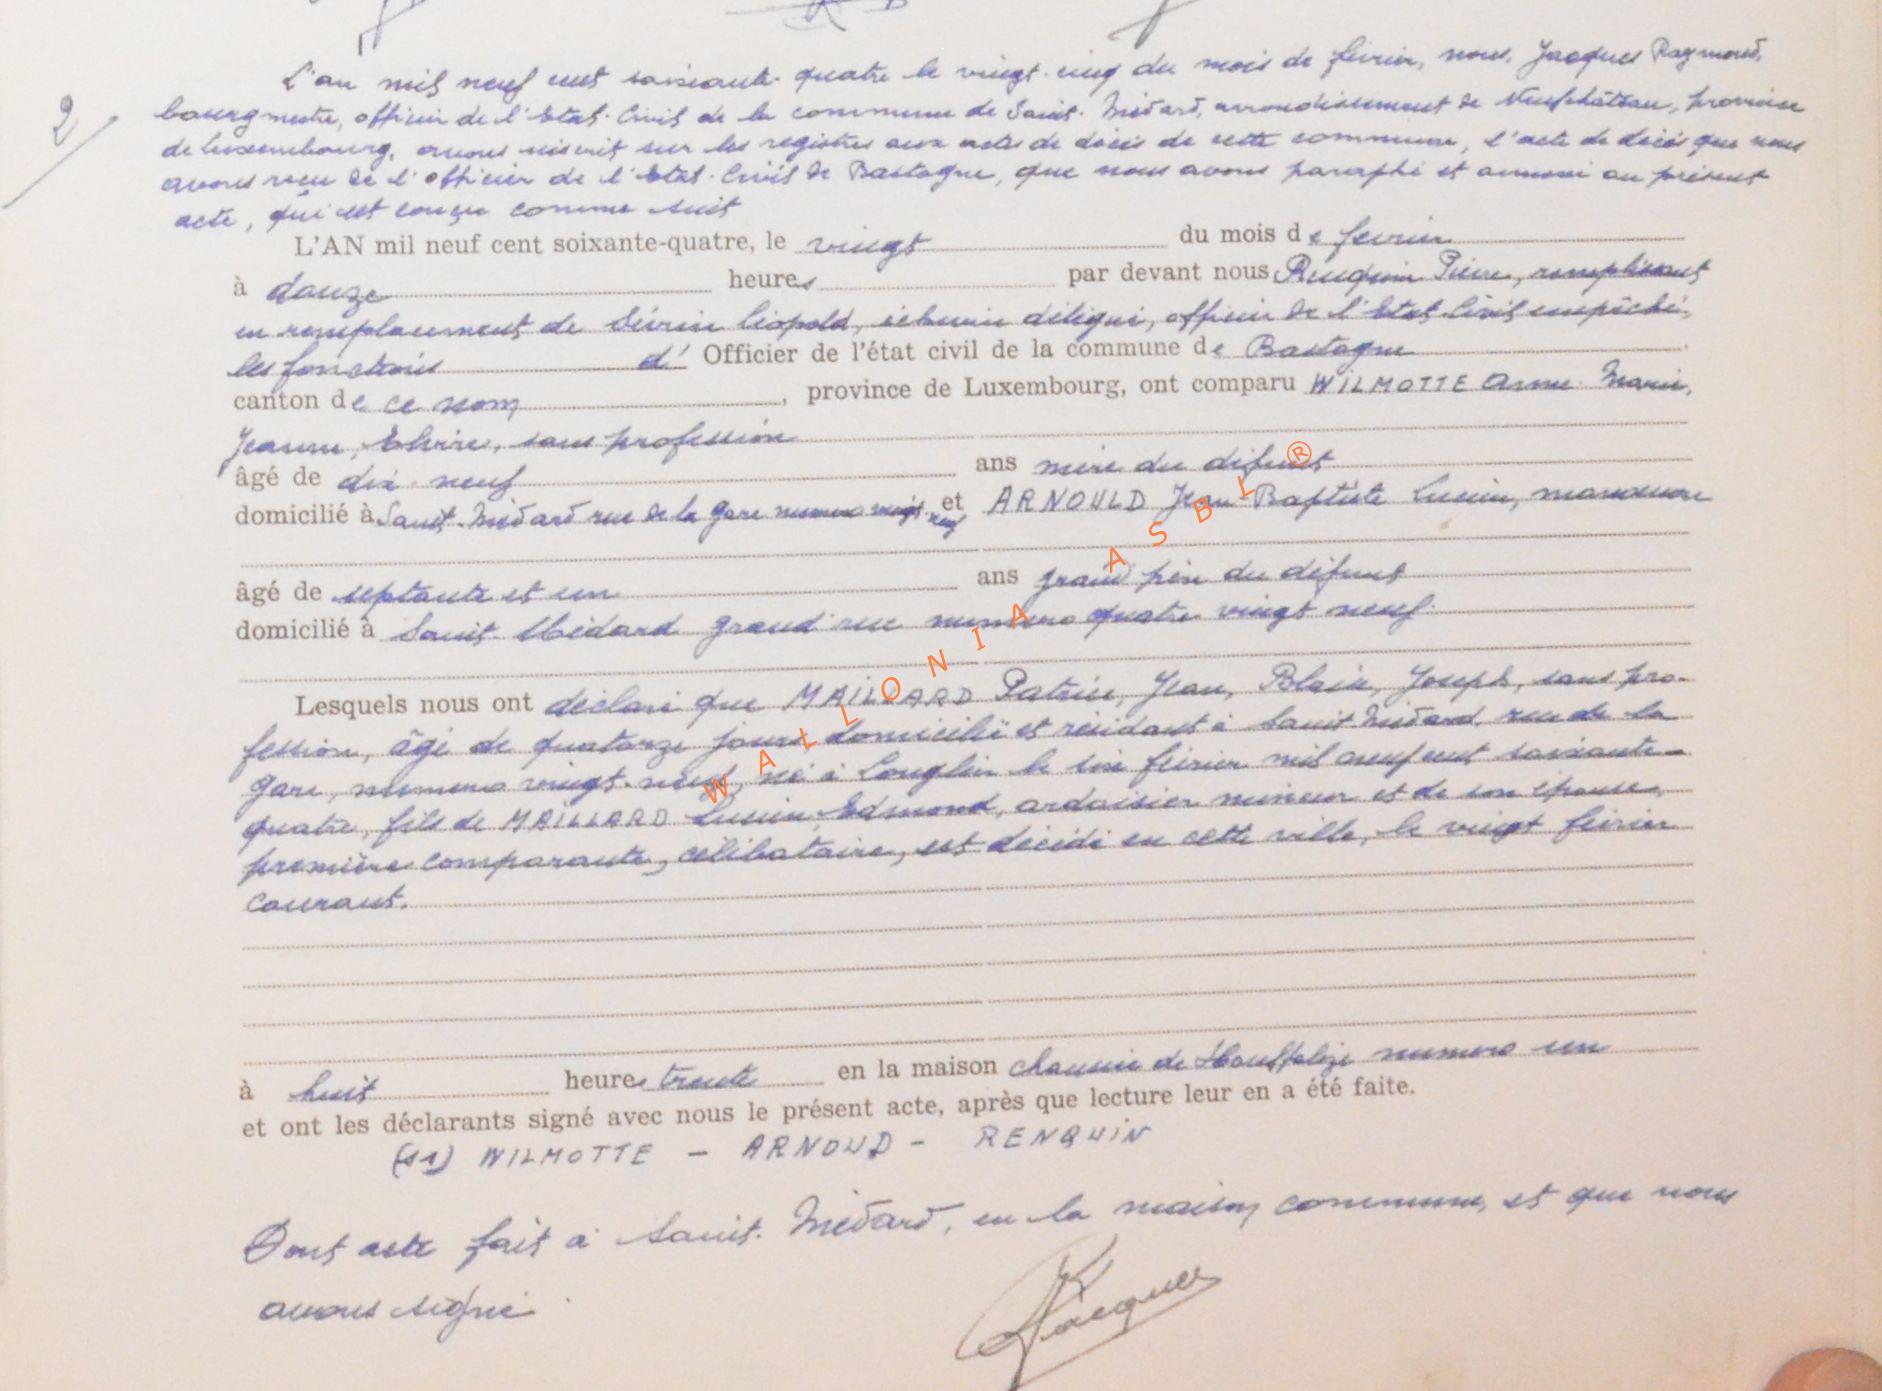 2
L'an mil neuf cent soixante-quatre le vingt-cinq du mois de février, nous, Jacques Raymond,
bourgmestre, officier de l'Etat-Civil de la commune de Saint-Médard, arrondissement de Neufchâteau, province
de Luxembourg, avons inscrit sur les registres aux actes de décès de cette commune, l'acte de décès que nous
avons reçu de l'officier de l'Etat-Civil de Bastogne, que nous avons paraphé et annexé au présent
acte, qui est conçu comme suit
L'AN mil neuf cent soixante-quatre, le vingt du mois de février
à douze heures par devant nous Renquin Pierre, remplissant
en remplacement de Sévrin Léopold, échevin délégué, officier de l'Etat-Civil empêché,
les fonctions d' Officier de l'état civil de la commune de Bastogne
canton de ce nom, province de Luxembourg, ont comparu WILMOTTE Anne Marie,
Jeanne, Elvire, sans profession
âgé de dix-neuf ans mère du défunt
domicilié à Saint-Médard rue de la gare numero vingt-neuf et ARNOULD Jean-Baptiste Lucien, manoeuvre
âgé de septante et un ans grand père du défunt
domicilié à Saint-Médard grand rue numero quatre vingt neuf.
Lesquels nous ont déclaré que MAILLARD Patrice, Jean, Blaise, Joseph, sans pro-
fession, âgé de quatorze jours, domicilié et résidant à Saint Médard rue de la
gare, numero vingt-neuf, né à Longlier le six février mil neuf cent soixante-
quatre, fils de MAILLARD Lucien, Edmond, ardoisier mineur et de son épouse,
première comparante, célibataire, est décédé en cette ville, le vingt février
courant.
à huit heures trente en la maison chaussée de Houffalize numero un
et ont les déclarants signé avec nous le présent acte, après que lecture leur en a été faite.
(s1) WILMOTTE - ARNOUD - RENQUIN
Dont acte fait à Saint-Médard, en la maison commune, et que nous
avons signé.
Jacques
WALLONIA ASBL ®